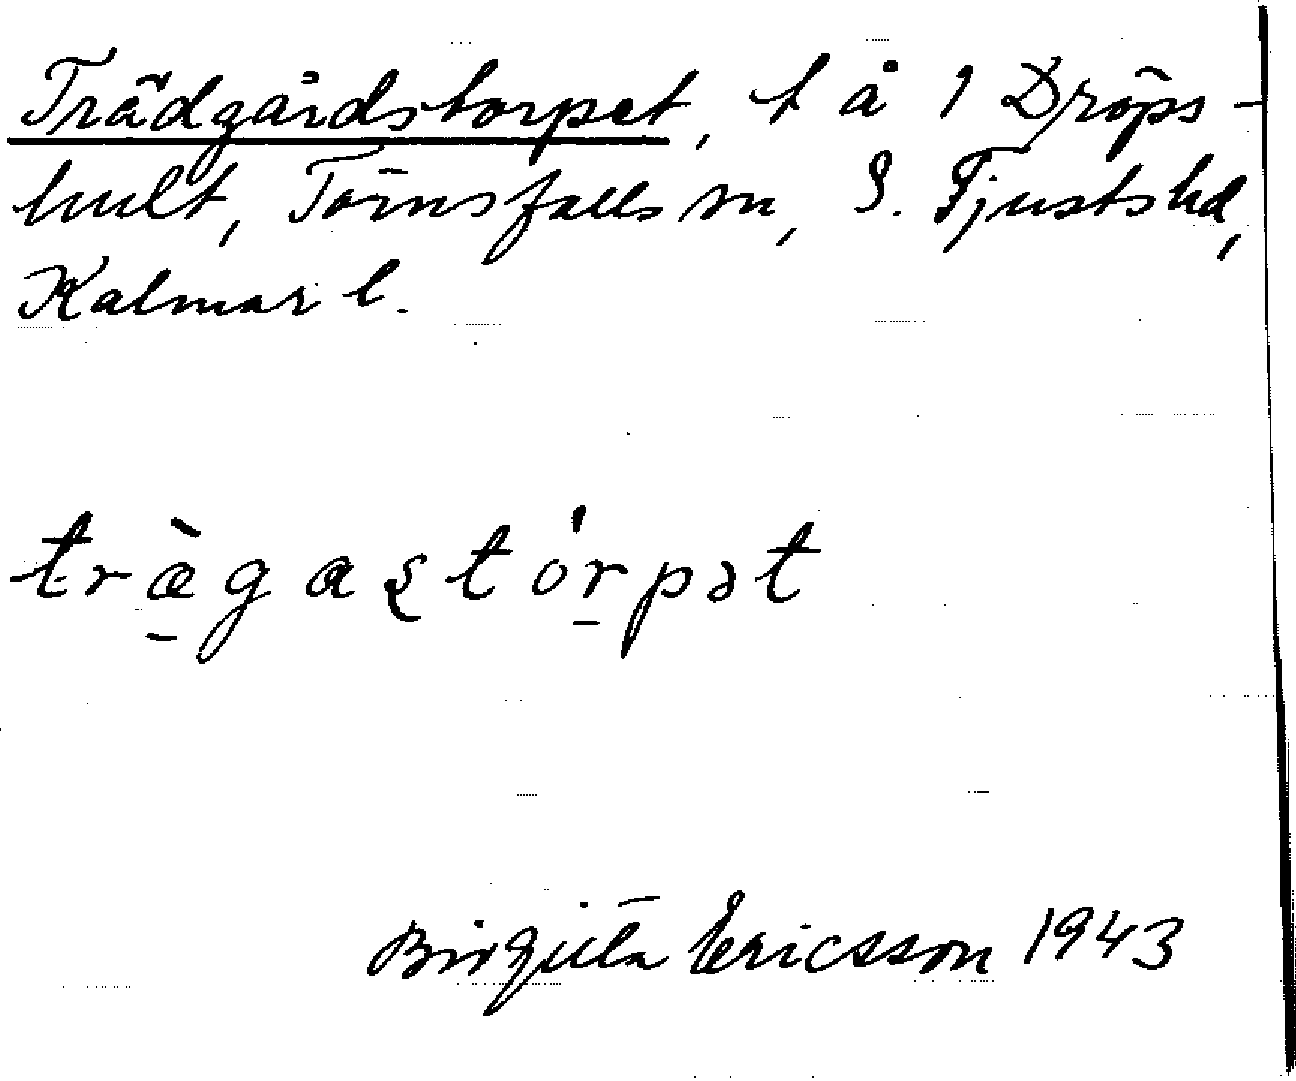 Trädgårdstorpet, t å 1 Dröps-
hult, Törnsfalls sn, S. Tjusts hd,
Kalmar l.
træ̠̀gaʂtór̠pət
Birgitta Ericsson 1943